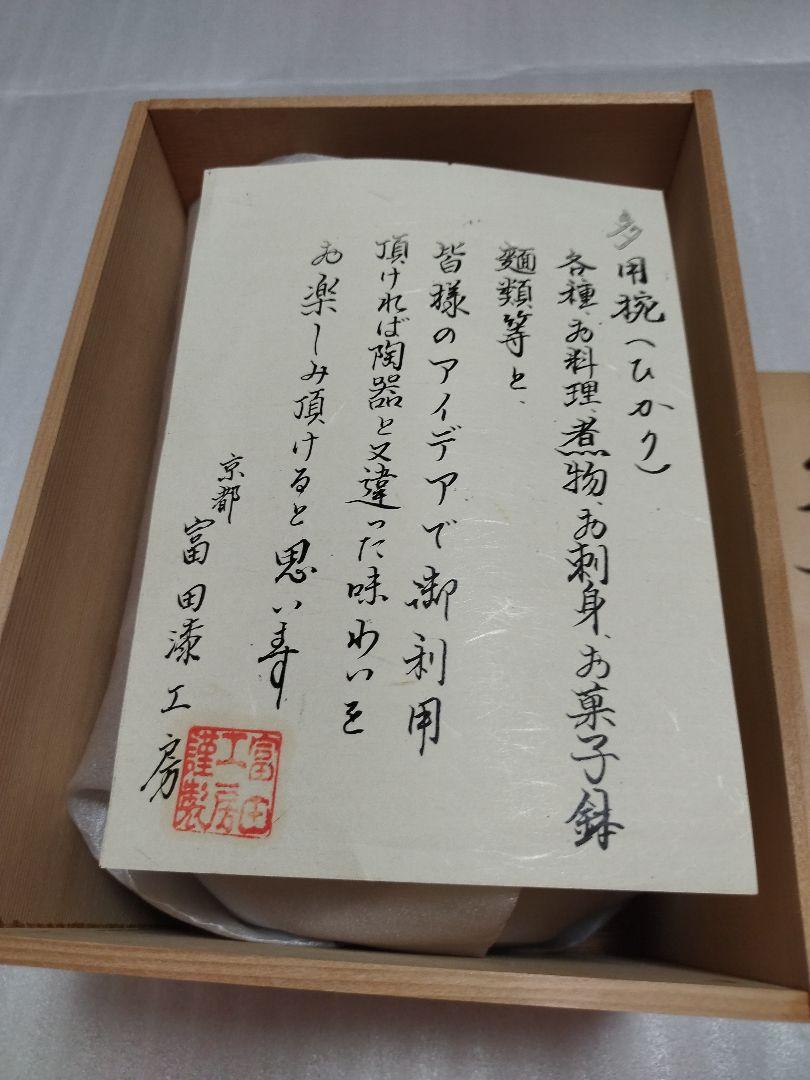 多用椀(ひかり)
各種、お料理、煮物、お刺身、お菓子鉢
麺類等と、
皆様のアイデアで御利用
頂ければ陶器と又違った味わいを
お楽しみ頂けると思います
京都
富田漆工房
富田
工房
謹製